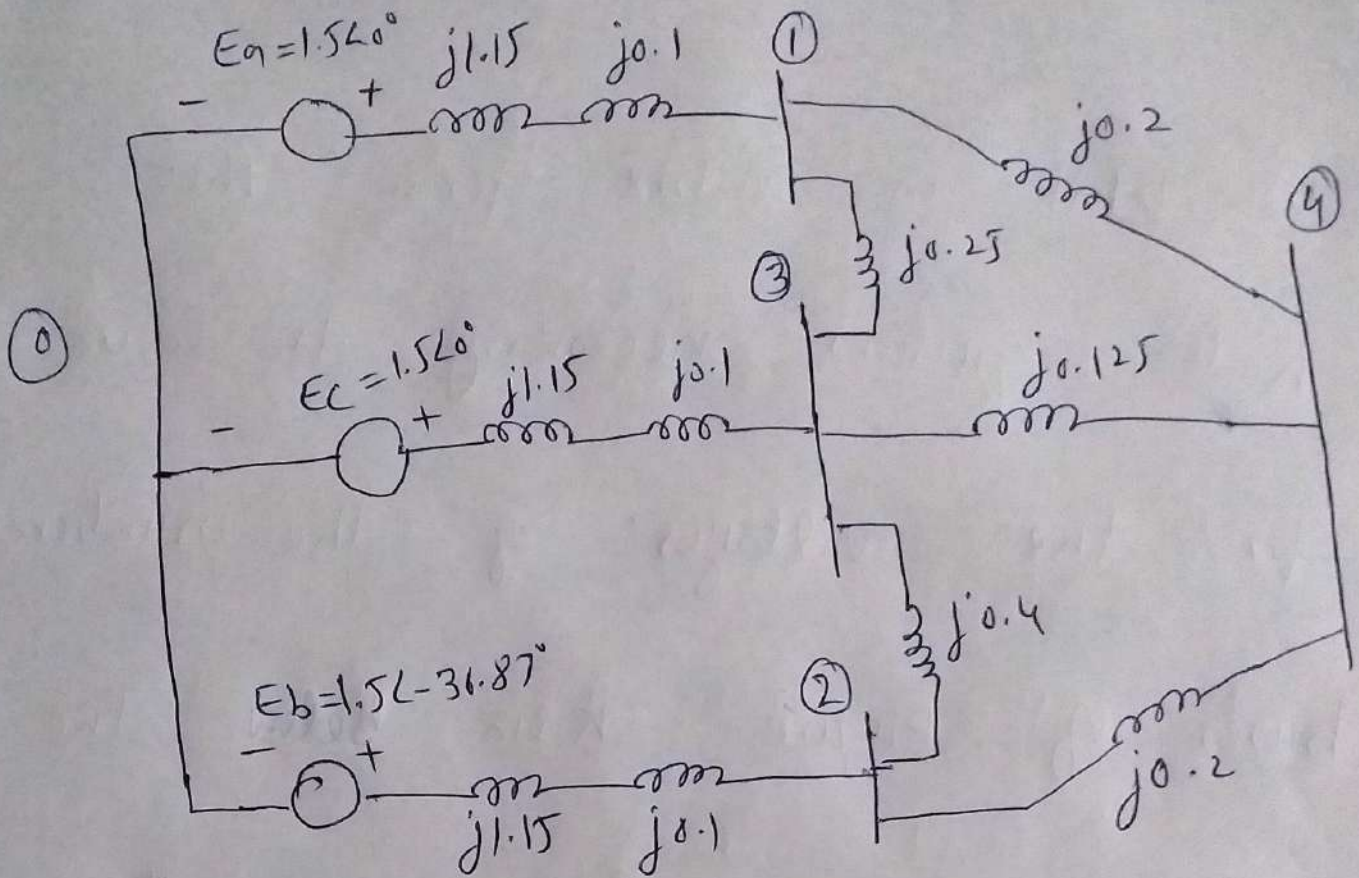 Ea = 1.5∠0° j1.15 j0.1 ①
- +
j0.2
④
j0.25
③
⓪
Ec = 1.5∠0° j1.15 j0.1 j0.125
- +
j0.4
Eb = 1.5∠-36.87° ②
- +
j1.15 j0.1 j0.2